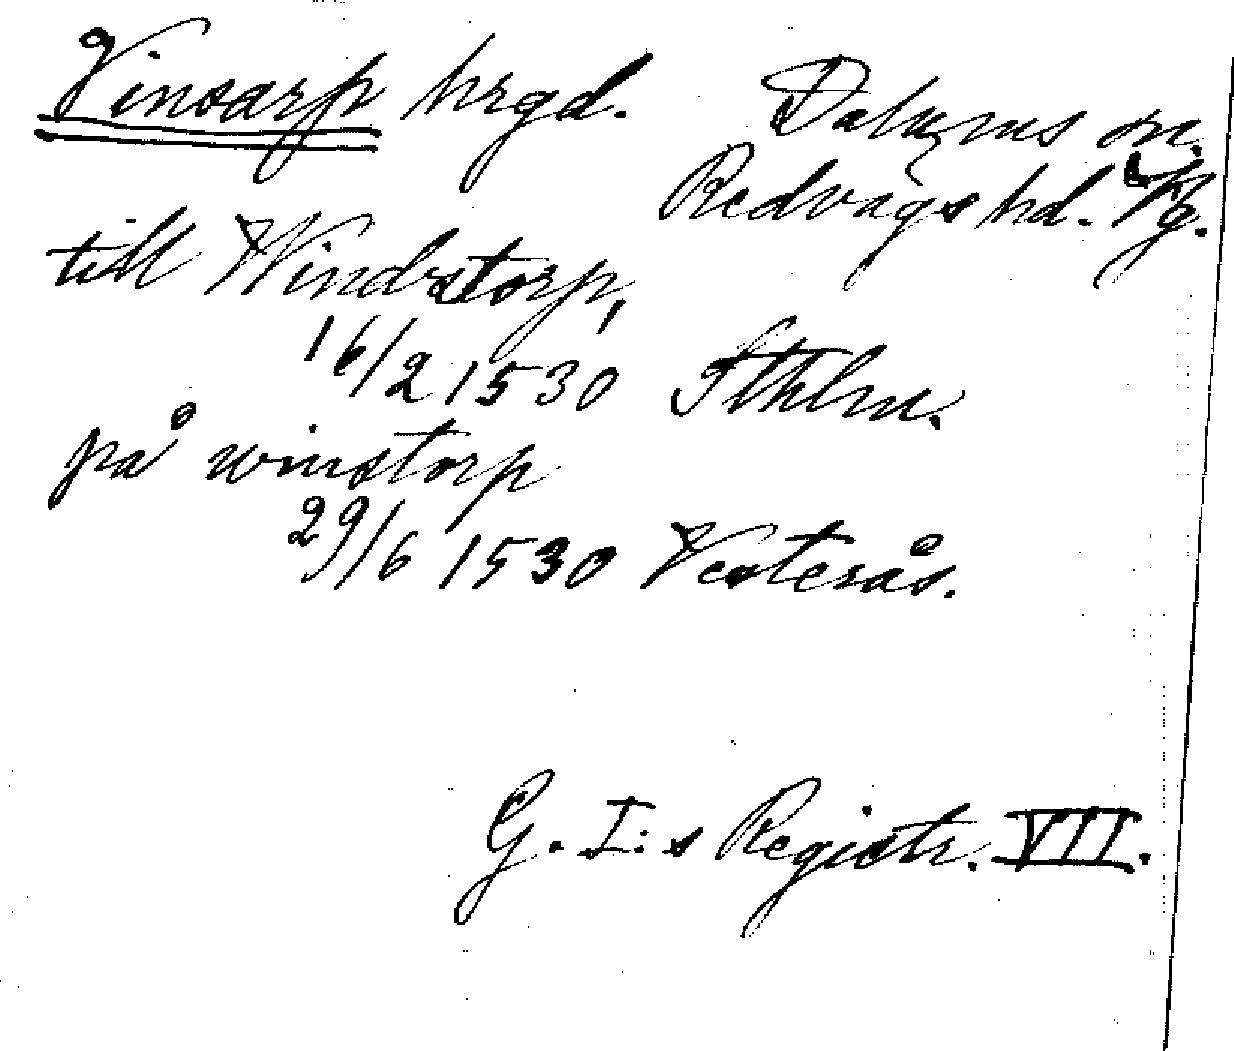 Vinsarp hrgd. Dalums sn.
Redvägs hd. Vg.
till Windstorp,
16/2 1530 Sthlm.
på winstorp
29/6 1530 Vesterås.
G. I:s Registr. VII.